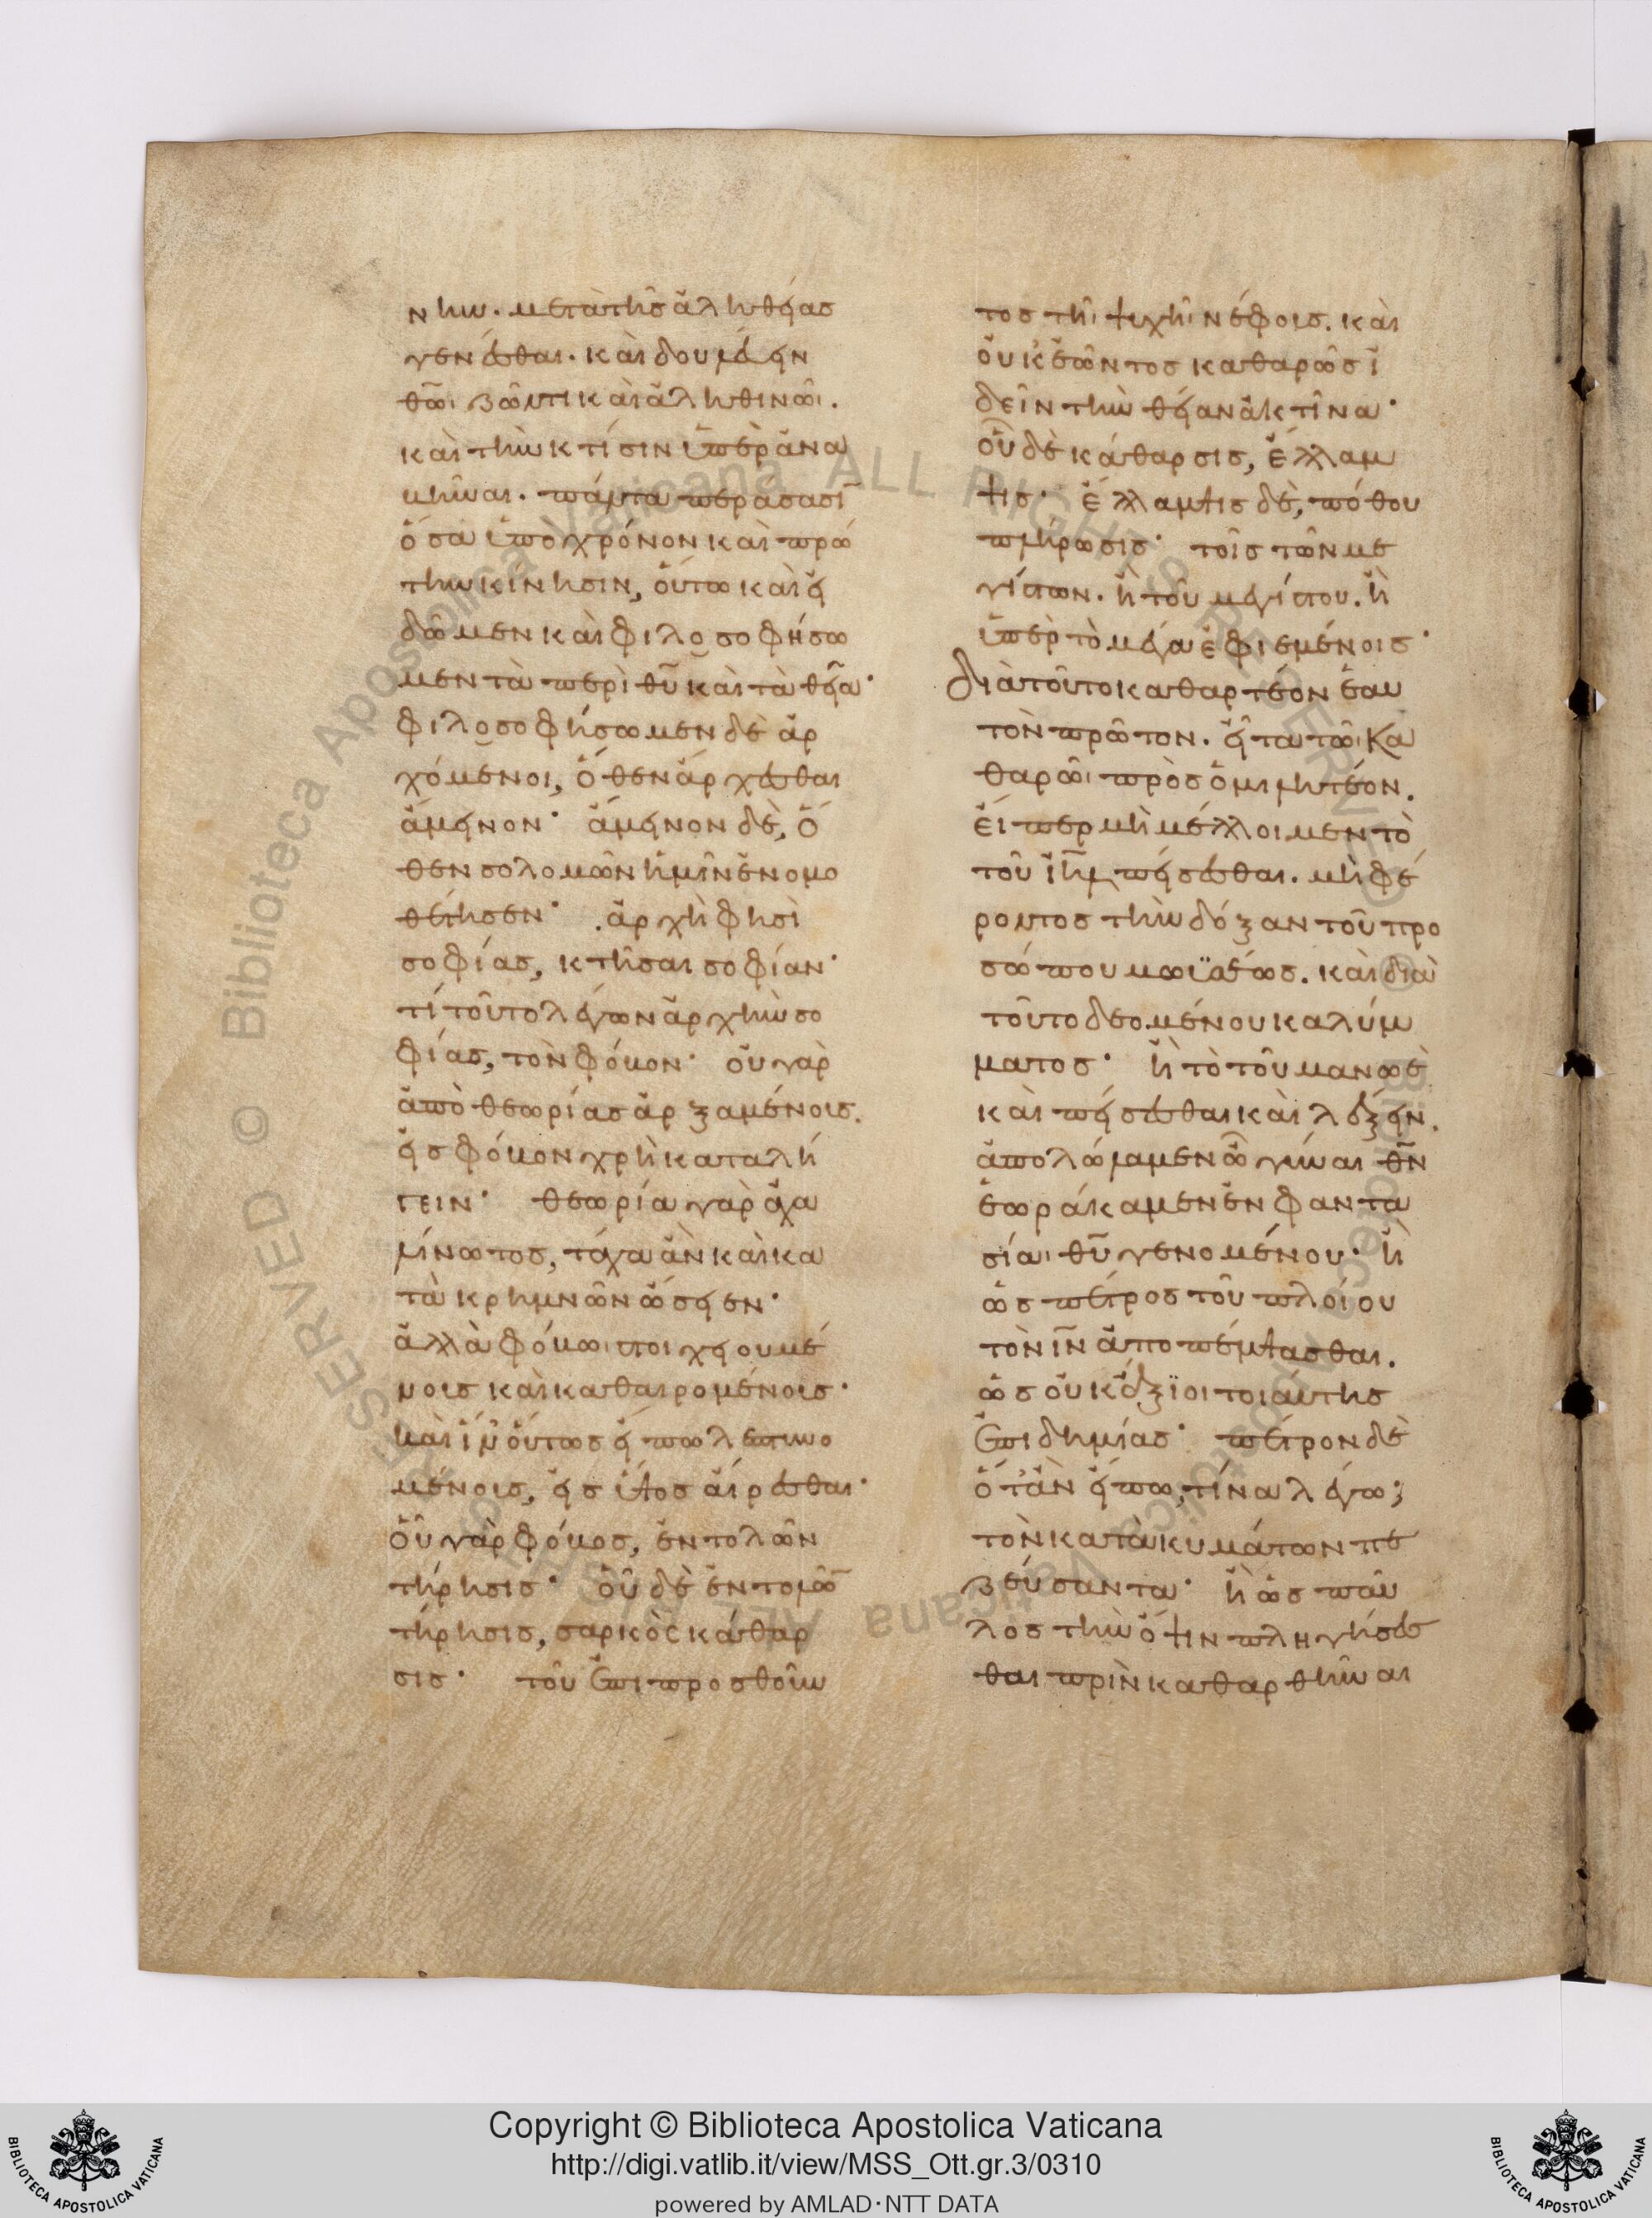 νην. μετὰ τῆς ἀληθείας
γενέσθαι. καὶ δουλεύειν
θ͞ωι ζῶντι καὶ ἀληθινῶι.
καὶ τὴν κτίσιν ὑπερανα
βῆναι. πάντα περάσασῑ
ὅσα ὑπὸ χρόνον καὶ πρώ
την κίνησιν, οὕτω καὶ εἰ
δῶμεν καὶ φιλοσοφήσω
μεν τὰ περὶ θ͞υ καὶ τὰ θεῖα·
φιλοσοφήσωμεν δὲ ἀρ
χόμενοι, ὅθεν ἄρχεσθαι
ἄμεινον· ἄμεινον δὲ, ὅ
θεν σολομῶν ἡμῖν ἐνομο
θέτησεν· ἀρχὴ φησὶ
σοφίας, κτῆσαι σοφίαν·
τί τοῦτο λέγων ἀρχὴν σο
φίας, τὸν φόβον· οὐ γὰρ
ἀπὸ θεωρίας ἀρξαμένοις.
εἰς φόβον χρὴ καταλή
γειν· θεωρία γὰρ ἀχα
λίνωτος, τάχα ἂν καὶ κα
τὰ κρημνῶν ὤσειεν·
ἀλλὰ φόβωι στοιχειουμέ
νοις καὶ καθαιρομένοις·
καὶ ἵν' οὕτως εἴπω λεπτυνο
μένοις, εἰς ὕψος αἴρεσθαι·
οὗ γὰρ φόβος, ἐντολῶν
τήρησις· οὗ δὲ ἐντολῶ͞
τήρησις, σαρκὸς κάθαρ
σις· τοῦ ἐπιπροσθοῦν
τος τῆι ψυχῆι νέφους. καὶ
οὐκ ἐῶντος καθαρῶς ἰ
δεῖν τὴν θείαν ἀκτῖνα·
οὗ δὲ κάθαρσις, ἔλλαμ
ψις· ἔλλαμψις δὲ, πόθου
πλήρωσις· τοῖς τῶν με
γίστων. ἢ τοῦ μεγίστου. ἢ
ὑπὲρ τὸ μέγα ἐφιεμένοις·
Διὰ τοῦτο καθαρτέον ἑαυ
τὸν πρῶτον. εἶτα τῶι κα
θαρῶι προσομιλητέον.
εἴπερ μὴ μέλλοιμεν τὸ
τοῦ ι͞ηλ πείσεσθαι. μὴ φέ
ροντος τὴν δόξαν τοῦ προ
σώπου μωϋσέως. καὶ διὰ
τοῦτο δεομένου καλύμ
ματος· ἢ τὸ τοῦ μανωὲ
καὶ πείσεσθαι καὶ λέξειν.
ἀπολώλαμεν ὦ γύναι θ͞ν
ἑωράκαμεν ἐν φαντα
σίαι θ͞υ γενομένου· ἢ
ὡς πέτρος τοῦ πλοίου
τὸν ι͞ν ἀποπέμψασθαι.
ὡς οὐκ ἄξϊοι τοιαύτης
ἐπιδημίας· πέτρον δὲ
ὅταν εἴπω, τίνα λέγω;
τὸν κατὰ κυμάτων πε
ζεύσαντα· ἢ ὡς παῦ
λος τὴν ὄψιν πληγήσεσ
θαι πρὶν καθαρθῆναι
Copyright © Biblioteca Apostolica Vaticana
http://digi.vatlib.it/view/MSS_Ott.gr.3/0310
powered by AMLAD·NTT DATA